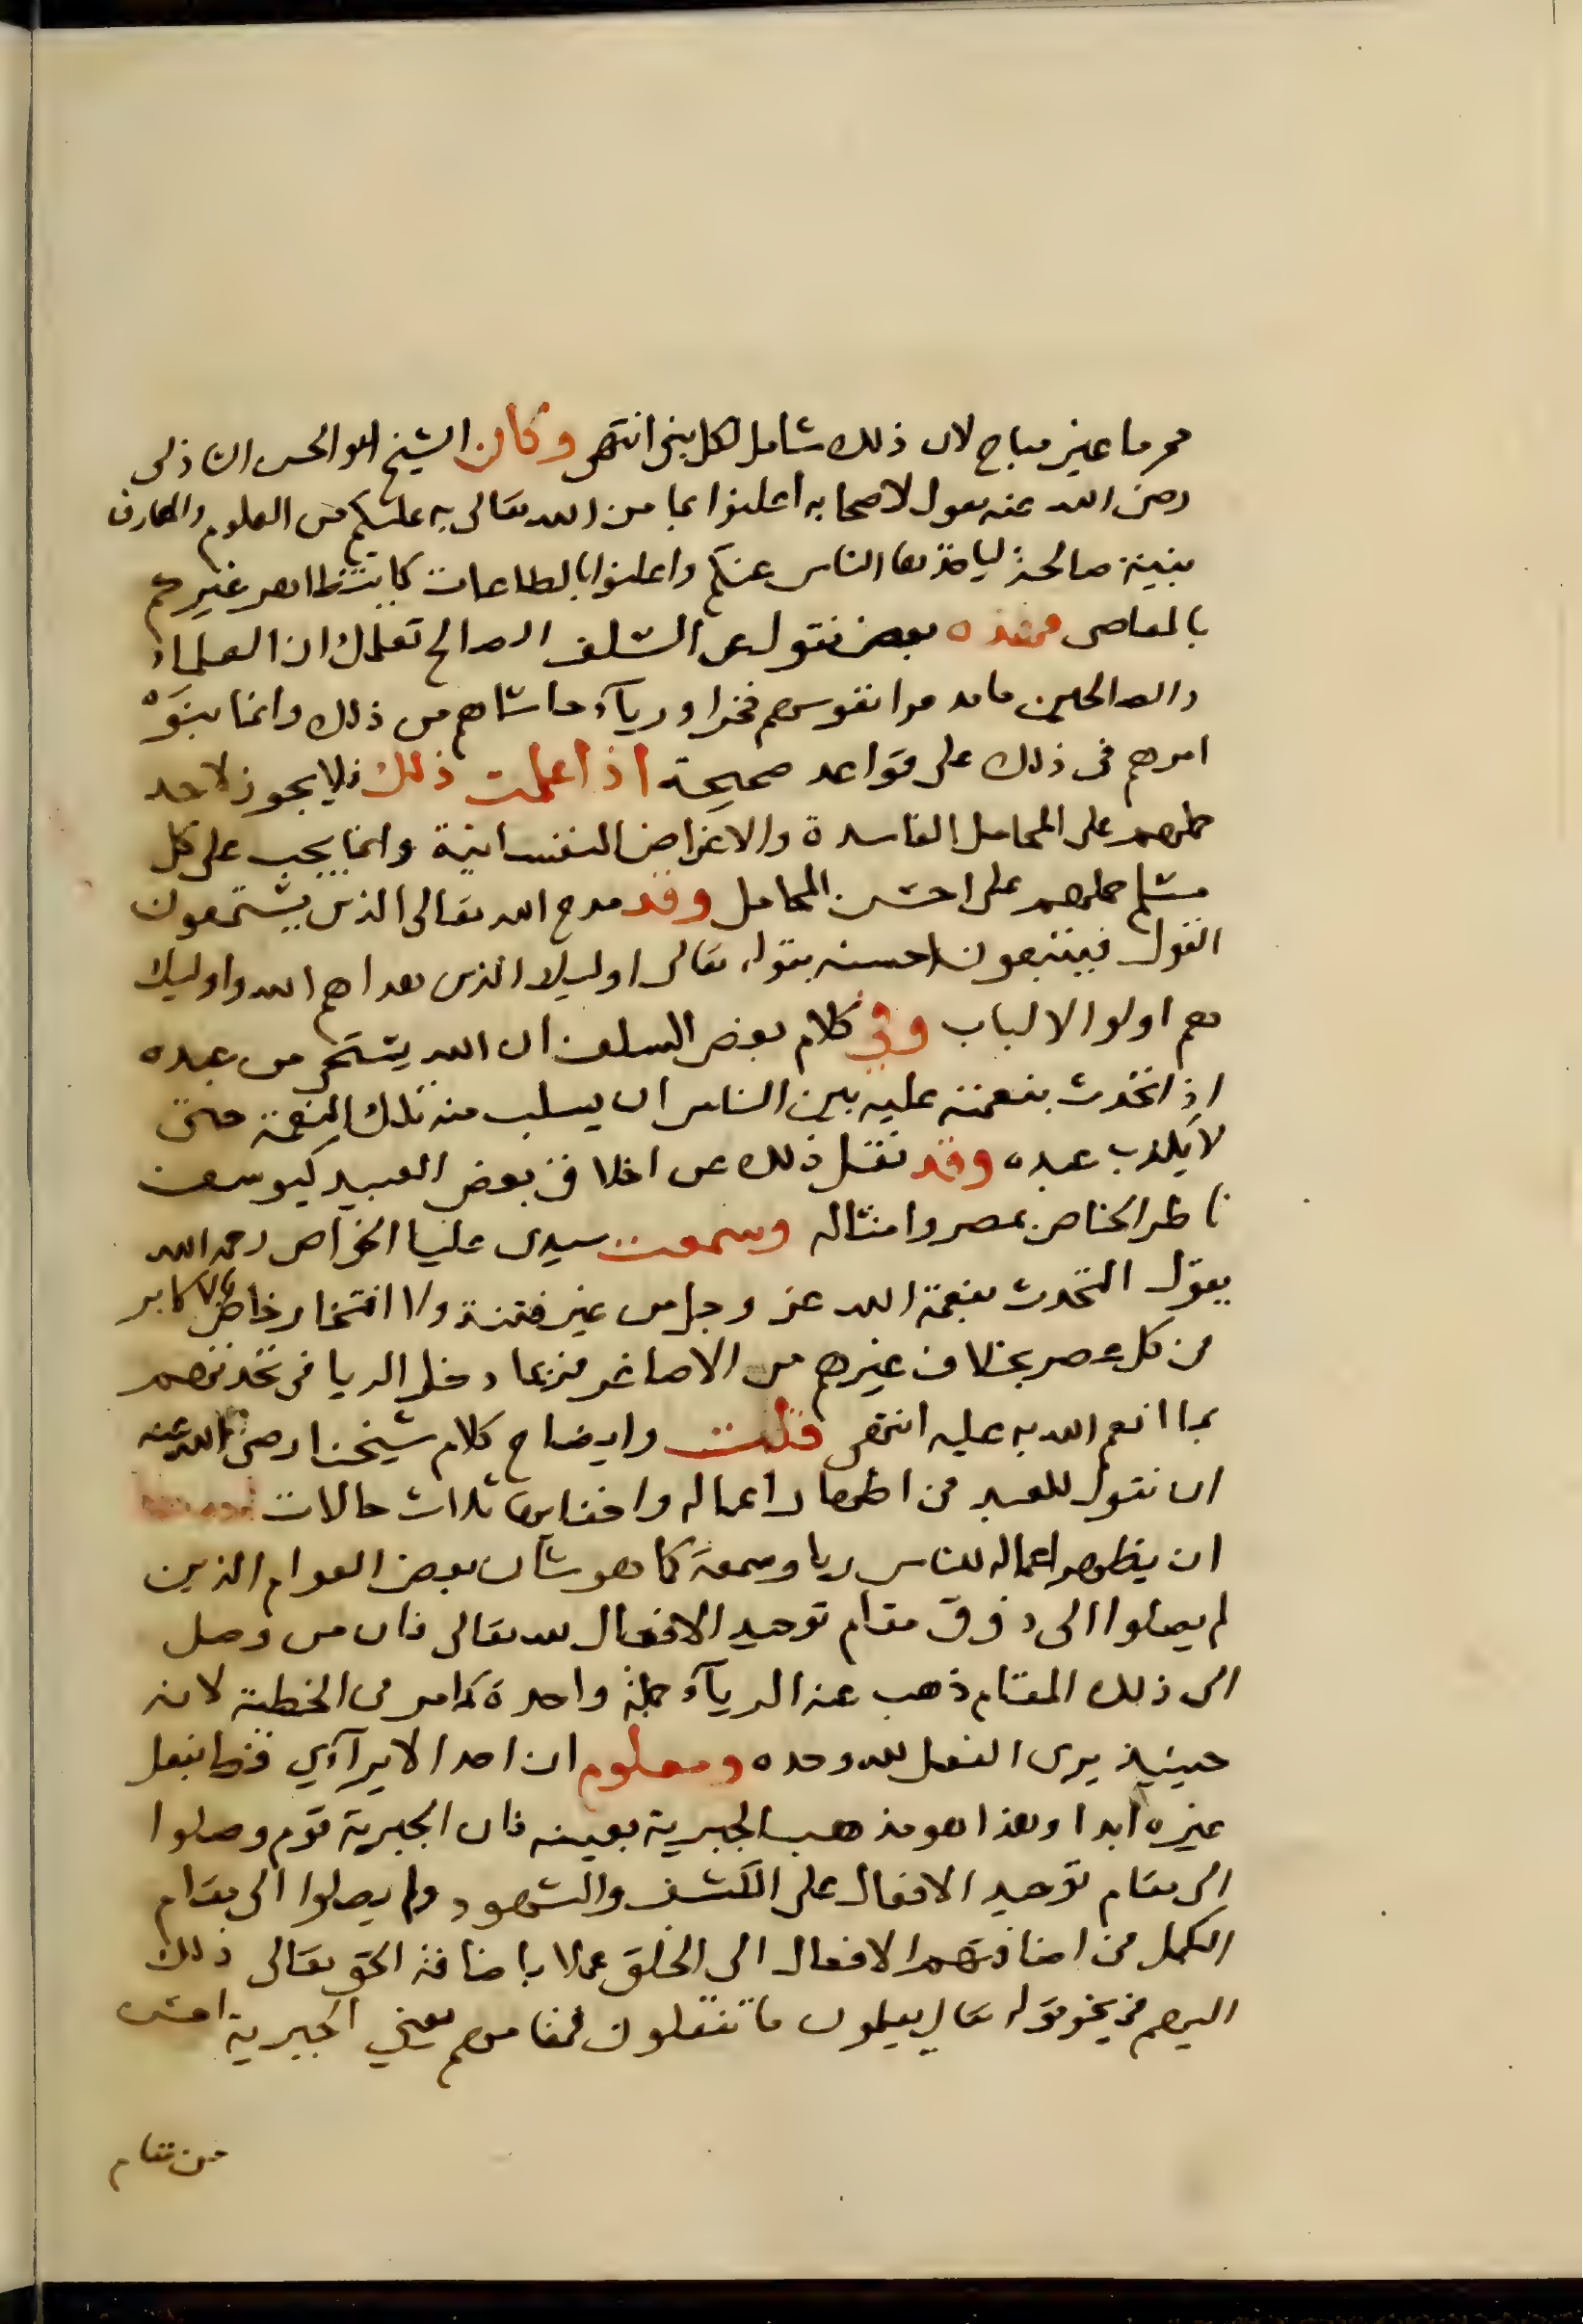 محرما غير مباح لان ذلك شامل لكل بنى انتهى وكان الشيخ ابو الحسن الشاذلى
رضى الله عنه يقول لاصحابه اعلنوا بما من الله تعالى به عليكم من العلوم والمعارف
بنية صالحة لياخذها الناس عنكم واعلنوا بالطاعات كما يتظاهر غيركم
بالمعاصى فهذه بعض نقول عن السلف الصالح تعلمك ان العلماء
والصالحين ما مدحوا نفوسهم فخرا ورياء حاشاهم من ذلك وانما بنوا
امرهم فى ذلك على قواعد صحيحة اذا علمت ذلك فلا يجوز لاحد
حملهم على المحامل الفاسدة والاغراض النفسانية وانما يجب على كل
مسلم حملهم على احسن المحامل وقد مدح الله تعالى الذين يستمعون
القول فيتبعون احسنه بقوله تعالى اوليك الذين هداهم الله واوليك
هم اولوا الالباب وفى كلام بعض السلف ان الله يستحى من عبده
اذا تحدث بنعمته عليه بين الناس ان يسلب منه تلك النعمة حتى
لا يكذب عبده وقد نقل ذلك عن اخلاق بعض العبيد كيوسف
ناظر الخاص بمصر وامثاله وسمعت سيدى عليا الخواص رحمه الله
يقول التحدث بنعمة الله عز وجل من غير فتنة ولا افتخار خاص بالاكابر
من كل عصر بخلاف غيرهم من الاصاغر فربما دخل الريا فى تحدثهم
بما انعم الله به عليه انتهى قلت وايضاح كلام شيخنا رضى الله عنه
ان نقول للعبد فى اظهار اعماله واخفايها ثلاث حالات
ان يظهر اعماله للناس ريا وسمعة كما هو شان بعض العوام الذين
لم يصلوا الى ذوق مقام توحيد الافعال لله تعالى فان من وصل
الى ذلك المقام ذهب عنه الرياء جملة واحدة كما مر فى الخطبة لانه
حينيذ يرى الفعل لله وحده ومعلوم ان احدا لا يراآي قط بفعل
غيره ابدا وهذا هو مذهب الجبرية بعينه فان الجبرية قوم وصلوا
الى مقام توحيد الافعال على الكشف والشهود ولم يصلوا الى مقام
الكمل فى اضافتهم الافعال الى الخلق عملا باضافة الحق تعالى ذلك
اليهم فى نحو قوله تعالى يعلمون ما تفعلون فمقامهم يعنى الجبرية
من مقام